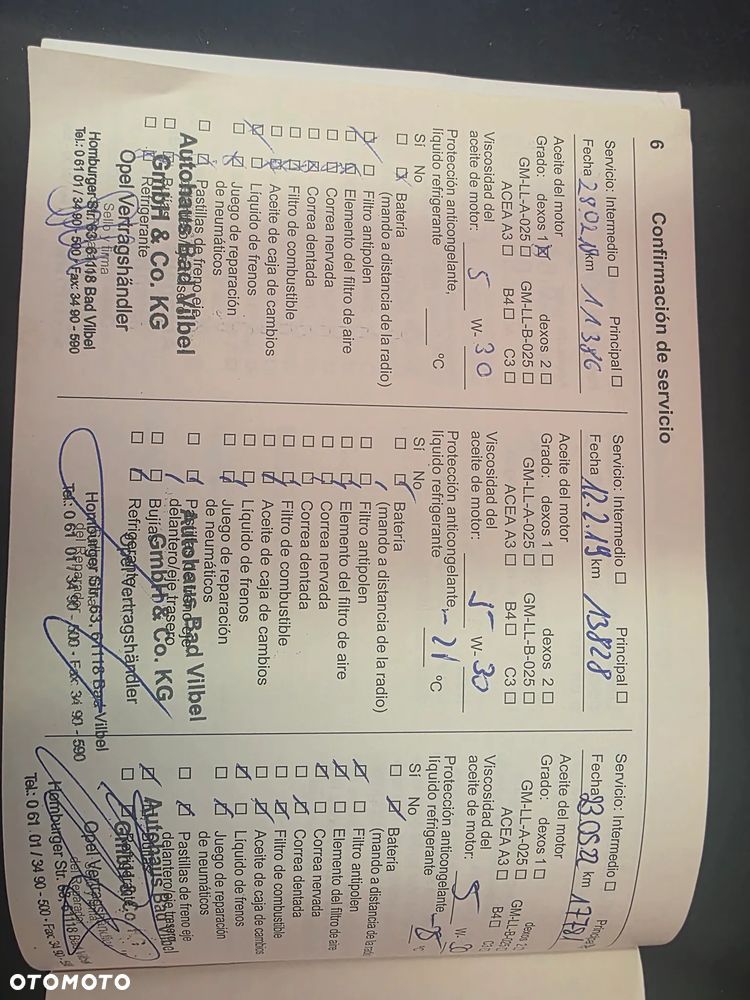 6
Confirmación de servicio
Servicio: Intermedio □ Principal □
Fecha 28.02.18 km 11386
Aceite del motor
Grado: dexos 1 ☒ dexos 2 □
GM-LL-A-025 □ GM-LL-B-025 □
ACEA A3 □ B4 □ C3 □
Viscosidad del
aceite de motor: 5 W- 30
Protección anticongelante,
líquido refrigerante °C
Sí No
Batería
(mando a distancia de la radio)
Filtro antipolen
Elemento del filtro de aire
Correa nervada
Correa dentada
Filtro de combustible
Aceite de caja de cambios
Líquido de frenos
Juego de reparación
de neumáticos
Pastillas de freno eje
Refrigerante
Sello y firma
Autohaus Bad Vilbel
GmbH & Co. KG
Opel Vertragshändler
Homburger Str. 63, 61118 Bad Vilbel
Tel.: 0 61 01 / 34 90 - 500, Fax: 34 90 - 590
Servicio: Intermedio □ Principal □
Fecha 12.2.19 km 13828
Aceite del motor
Grado: dexos 1 □ dexos 2 □
GM-LL-A-025 □ GM-LL-B-025 □
ACEA A3 □ B4 □ C3 □
Viscosidad del
aceite de motor: 5 W- 30
Protección anticongelante,
líquido refrigerante - 21 °C
Sí No
Batería
(mando a distancia de la radio)
Filtro antipolen
Elemento del filtro de aire
Correa nervada
Correa dentada
Filtro de combustible
Aceite de caja de cambios
Líquido de frenos
Juego de reparación
de neumáticos
Pastillas de freno eje
delantero/eje trasero
Bujías
Refrigerante
Autohaus Bad Vilbel
GmbH & Co. KG
Opel Vertragshändler
Homburger Str. 63, 61118 Bad Vilbel
Tel.: 0 61 01 / 34 90 - 500 - Fax: 34 90 - 590
Servicio: Intermedio □ Principal
Fecha km
Aceite del motor
Grado: dexos 1 □ dexos 2
GM-LL-A-025 □ GM-LL-B-025
ACEA A3 □ B4 □ C3
Viscosidad del
aceite de motor: 5 W- 30
Protección anticongelante,
líquido refrigerante °C
Sí No
Batería
(mando a distancia de la radio)
Filtro antipolen
Elemento del filtro de aire
Correa nervada
Correa dentada
Filtro de combustible
Aceite de caja de cambios
Líquido de frenos
Juego de reparación
de neumáticos
Pastillas de freno eje
delantero/eje trasero
Autohaus Bad Vilbel
GmbH & Co.
Opel
Homburger Str. 63, 61118 Bad
Tel.: 0 61 01 / 34 90 - 500 - Fax 34 90
OTOMOTO